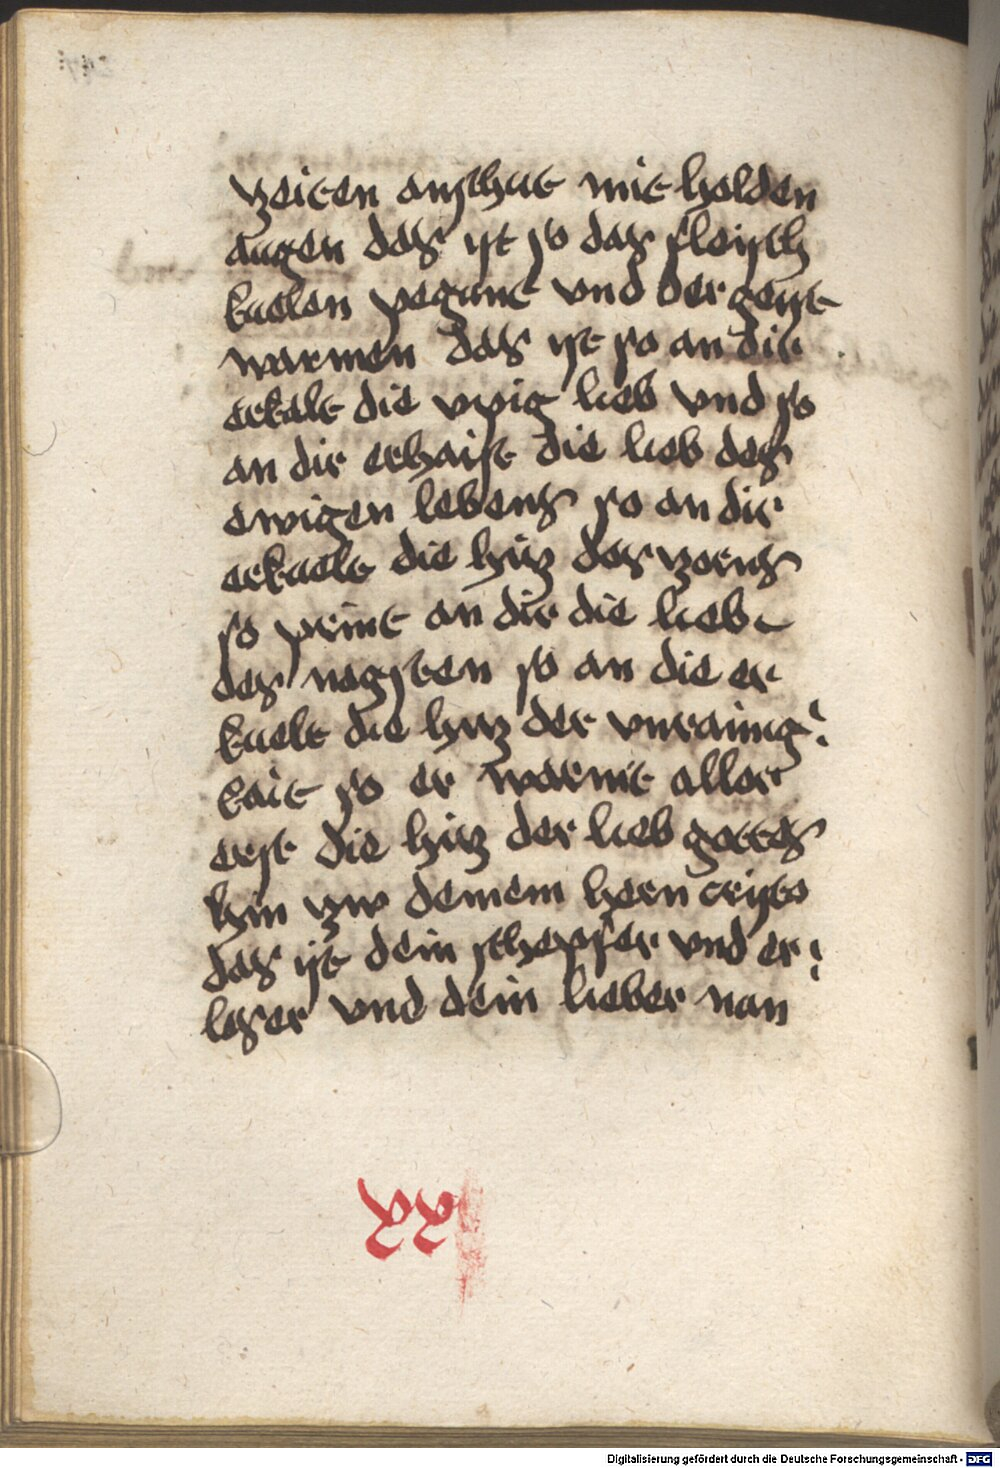 zeiten anschut mit holden
augen das ist so das fleisch
kuelen pegunt vnd der geist
warmen das ist so an dir
erkalt die vpig lieb vnd so
an dir erhaist die lieb des
ewigen lebens so an dir
erkuelt die hitz des zorns
so print an dir die lieb
des nagsten so an die er
kuelt die hitz der vnrainig
kait so er warmt aller
erst die hitz der lieb gottes
hin zw deinem hern cristo
das ist dein schepfer vnd er
leser vnd dein lieber man
xx
Digitalisierung gefördert durch die Deutsche Forschungsgemeinschaft - DFG